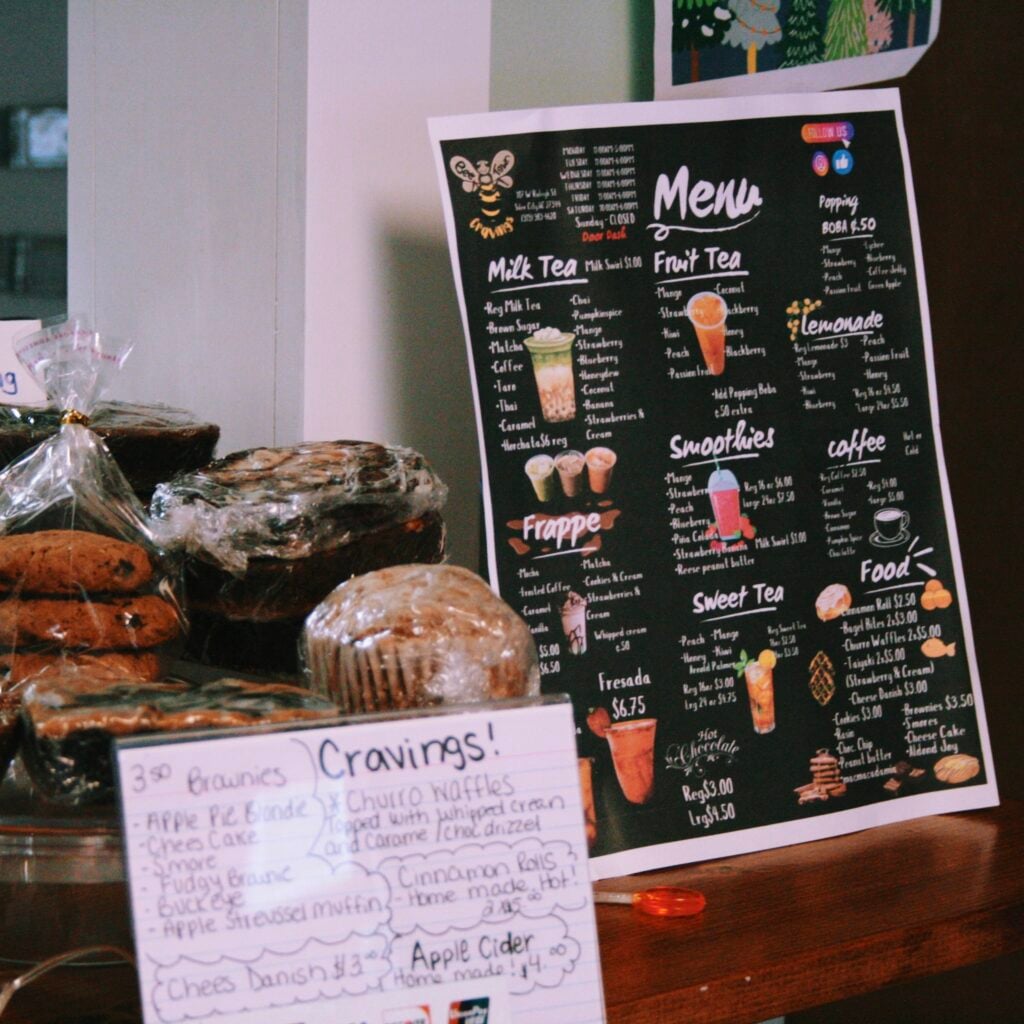 Cravings
MONDAY 11:00AM-5:00PM
TUESDAY 11:00AM-6:00PM
WEDNESDAY 11:00AM-6:00PM
THURSDAY 11:00AM-6:00PM
FRIDAY 11:00AM-6:00PM
SATURDAY 10:00AM-6:00PM
Sunday - CLOSED
Door Dash
Menu
FOLLOW US
Milk Tea Milk Swirl $1.00
•Reg Milk Tea
•Brown Sugar
•Matcha
•Coffee
•Taro
•Thai
•Caramel
•Horchata $6 reg
•Chai
•Pumpkinspice
•Mango
•Strawberry
•Blueberry
•Honeydew
•Coconut
•Banana
•Strawberries &
Cream
Frappe
•Mocha
Coffee
•Caramel
$5.00
$6.50
•Matcha
•Cookies & Cream
•Strawberries &
Cream
Whipped cream
Fresada
$6.75
Fruit Tea
•Mango
•Kiwi
•Peach
•Passion fruit
•Coconut
•Blackberry
•Add Popping Boba
¢.50 extra
Smoothies
•Mango
•Strawberry
•Peach
•Blueberry
•Piña Colada
•Strawberry Banana Milk Swirl $1.00
•Reese peanut butter
Reg 16 oz $6.00
Large 24oz $7.50
Sweet Tea
•Peach •Mango
•Honey •Kiwi
Arnold Palmer
Reg 16oz $3.00
Lrg 24 oz $4.75
Reg Sweet Tea
Hot
Chocolate
Reg $3.00
Lrg $4.50
Popping
BOBA ¢.50
•Mango
•Strawberry
•Peach
•Passion Fruit
•Lychee
•Blueberry
•Coffee Jelly
Green Apple
Lemonade
Reg Lemonade $3
•Mango
•Strawberry
•Kiwi
•Blueberry
•Peach
•Passion Fruit
•Honey
Reg 16 oz $4.50
Large 24oz $5.50
coffee Hot or
Cold
Reg Coffee $2.50
•Caramel
•Vanilla
•Brown Sugar
•Cinnamon
•Pumpkin Spice
Reg $4.00
Large $5.00
Food
Cinnamon Roll $2.50
•Bagel Bites 2x$3.00
•Churro Waffles 2x$5.00
•Taiyaki 2x$5.00
(Strawberry & Cream)
•Cheese Danish $3.00
•Cookies $3.00
•Choc. Chip
•Peanut butter
•macmacadamia
•Brownies $3.50
•S'mores
•Cheese Cake
•Aldmond Joy
Cravings!
3.50 Brownies
- Apple Pie Blonde
- Chees Cake
- S'more
- Fudgy Brownie
- Buckeye
- Apple Streussel muffin
* Churro Waffles
Topped with whipped cream
and Carame/choc drizzel
Cinnamon Rolls
- Home made, Hot!
Chees Danish $3.00
Apple Cider
Home made! $4.00